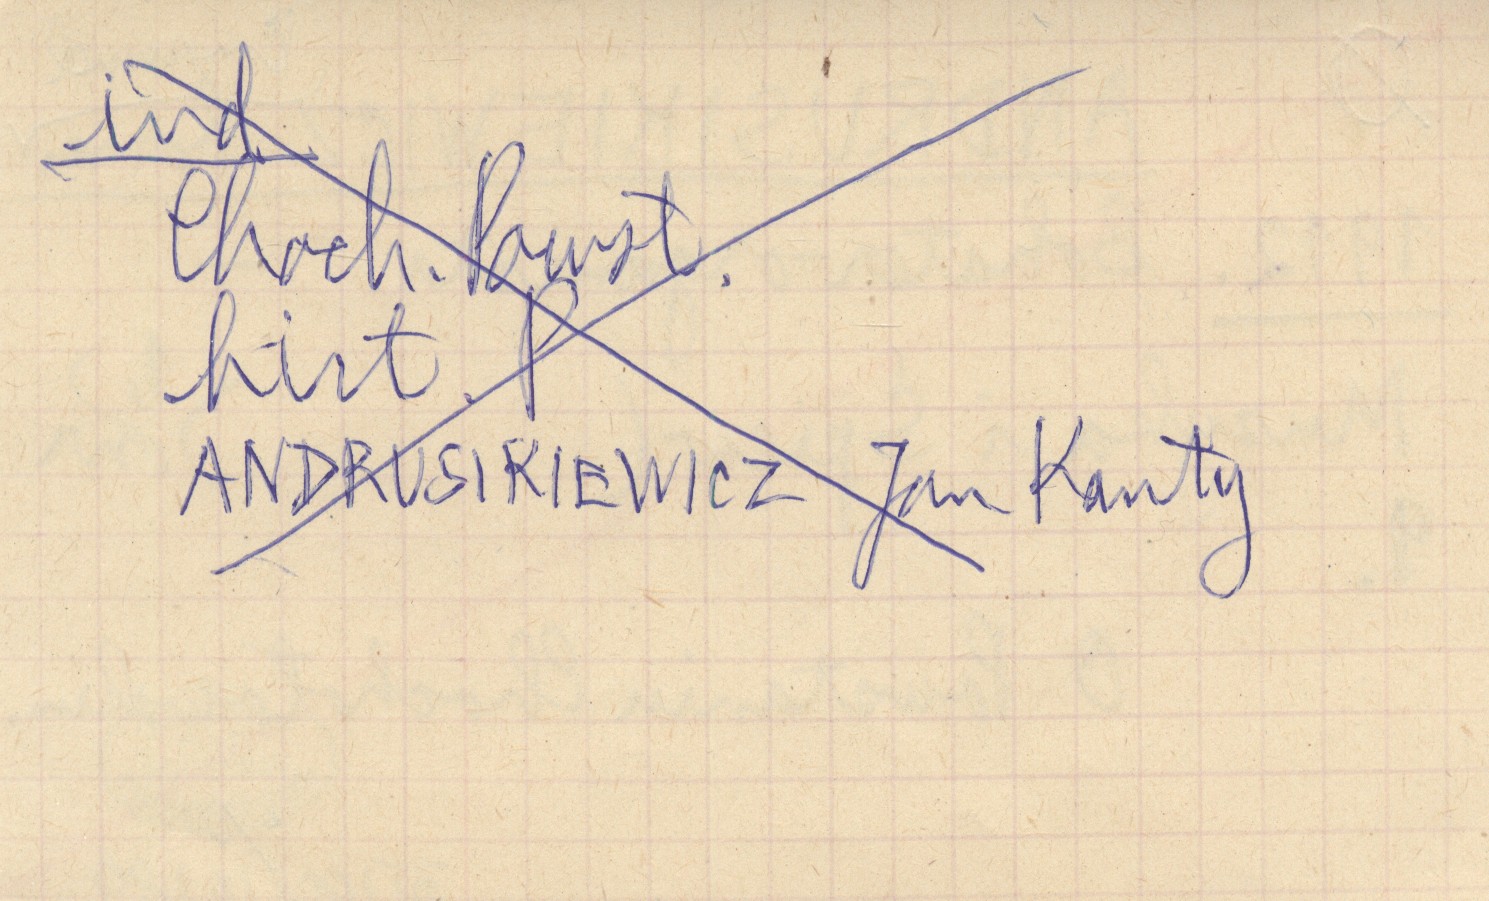 ind.
Choch. Powst.
hist. P
ANDRUSIKIEWICZ Jan Kanty